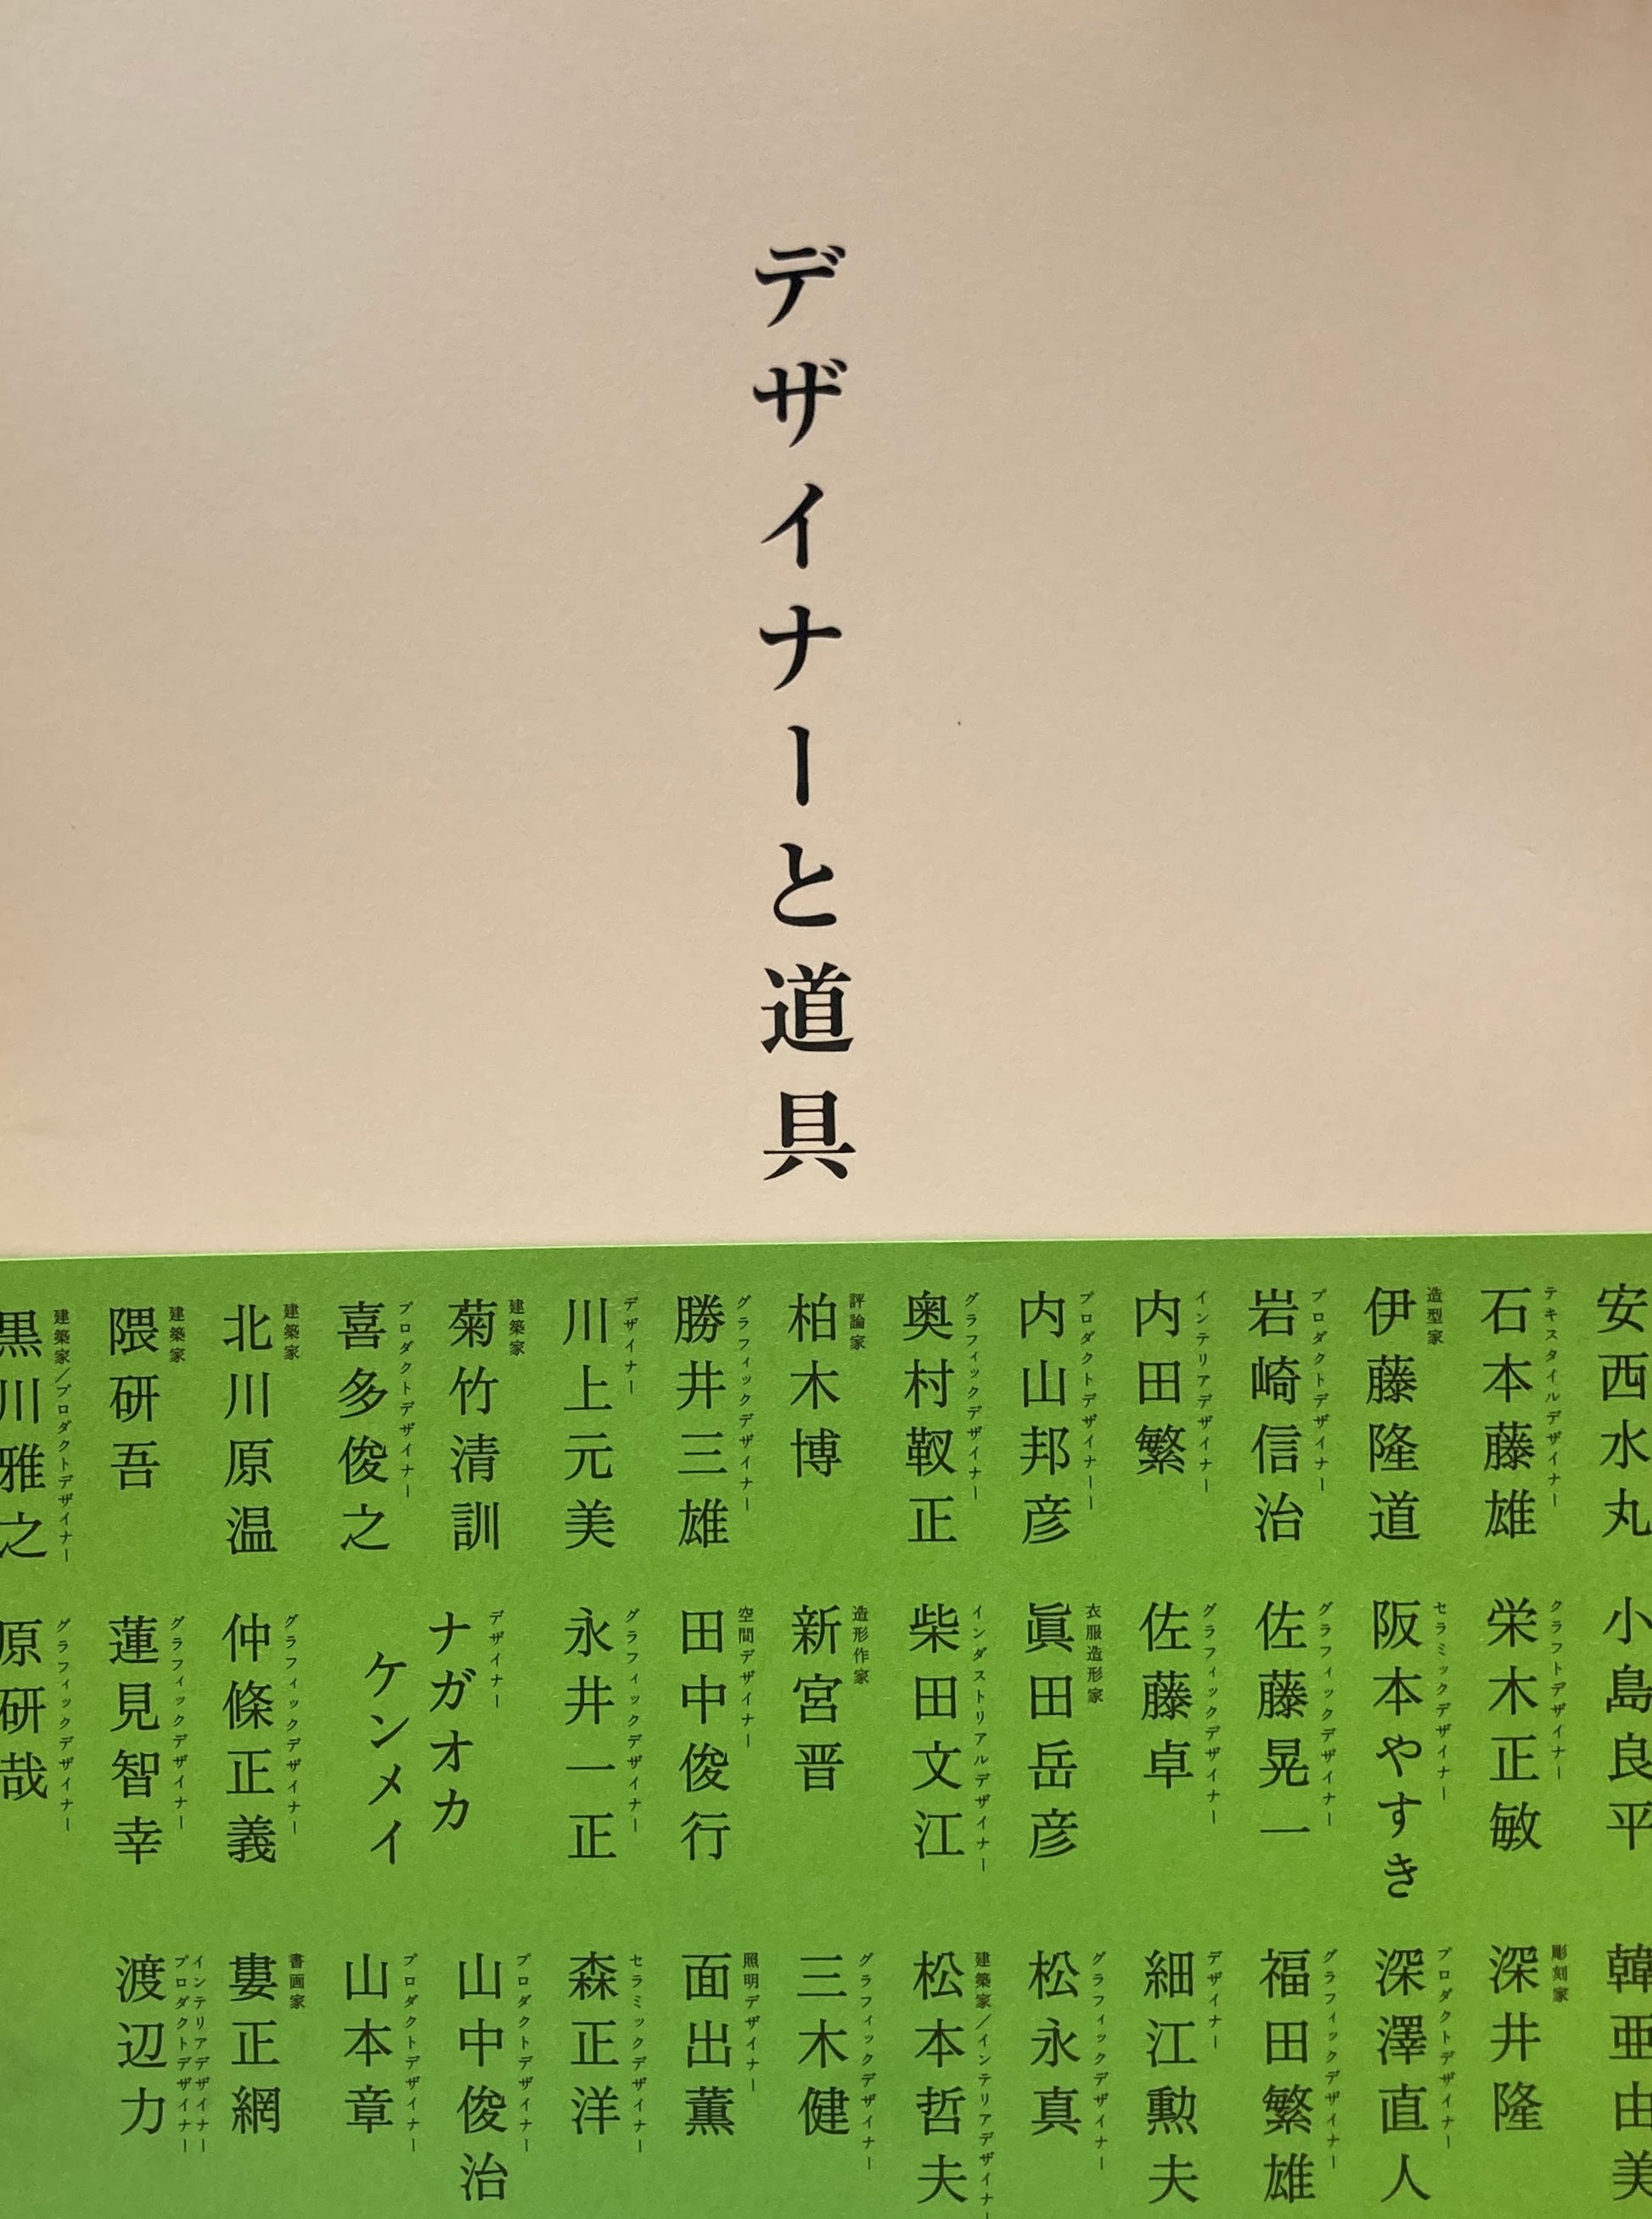 デザイナーと道具
安西水丸
テキスタイルデザイナー
石本藤雄
造型家
伊藤隆道
プロダクトデザイナー
岩崎信治
インテリアデザイナー
内田繁
プロダクトデザイナー
内山邦彦
グラフィックデザイナー
奥村靫正
評論家
柏木博
グラフィックデザイナー
勝井三雄
デザイナー
川上元美
建築家
菊竹清訓
プロダクトデザイナー
喜多俊之
建築家
北川原温
建築家
隈研吾
建築家／プロダクトデザイナー
黒川雅之
小島良平
クラフトデザイナー
栄木正敏
セラミックデザイナー
阪本やすき
グラフィックデザイナー
佐藤晃一
グラフィックデザイナー
佐藤卓
衣服造形家
眞田岳彦
インダストリアルデザイナー
柴田文江
造形作家
新宮晋
空間デザイナー
田中俊行
グラフィックデザイナー
永井一正
デザイナー
ナガオカ
ケンメイ
グラフィックデザイナー
仲條正義
グラフィックデザイナー
蓮見智幸
グラフィックデザイナー
原研哉
韓亜由美
彫刻家
深井隆
プロダクトデザイナー
深澤直人
グラフィックデザイナー
福田繁雄
デザイナー
細江勲夫
グラフィックデザイナー
松永真
建築家／インテリアデザイナー
松本哲夫
グラフィックデザイナー
三木健
照明デザイナー
面出薫
セラミックデザイナー
森正洋
プロダクトデザイナー
山中俊治
プロダクトデザイナー
山本章
書画家
婁正綱
インテリアデザイナー
プロダクトデザイナー
渡辺力